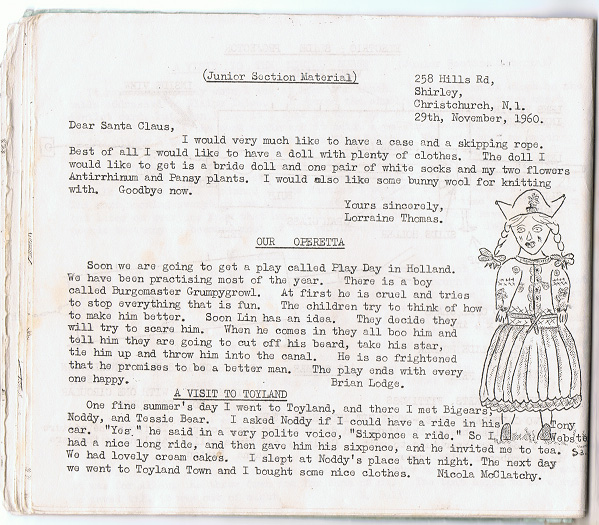 (Junior Section Material)
258 Hills Rd,
Shirley,
Christchurch, N.1.
29th, November, 1960.
Dear Santa Claus,
I would very much like to have a case and a skipping rope.
Best of all I would like to have a doll with plenty of clothes. The doll I
would like to get is a bride doll and one pair of white socks and my two flowers
Antirrhinum and Pansy plants. I would also like some bunny wool for knitting
with. Goodbye now.
Yours sincerely,
Lorraine Thomas.
OUR OPERETTA
Soon we are going to get a play called Play Day in Holland.
We have been practising most of the year. There is a boy
called Burgomaster Grumpygrowl. At first he is cruel and tries
to stop everything that is fun. The children try to think of how
to make him better. Soon Lin has an idea. They decide they
will try to scare him. When he comes in they all boo him and
tell him they are going to cut off his beard, take his star,
tie him up and throw him into the canal. He is so frightened
that he promises to be a better man. The play ends with every
one happy. Brian Lodge.
A VISIT TO TOYLAND
One fine summer's day I went to Toyland, and there I met Bigears,
Noddy, and Tessie Bear. I asked Noddy if I could have a ride in his
car. "Yes," he said in a very polite voice, "Sixpence a ride." So I
had a nice long ride, and then gave him his sixpence, and he invited me to tea.
We had lovely cream cakes. I slept at Noddy's place that night. The next day
we went to Toyland Town and I bought some nice clothes. Nicola McClatchy.
Tony
Webste